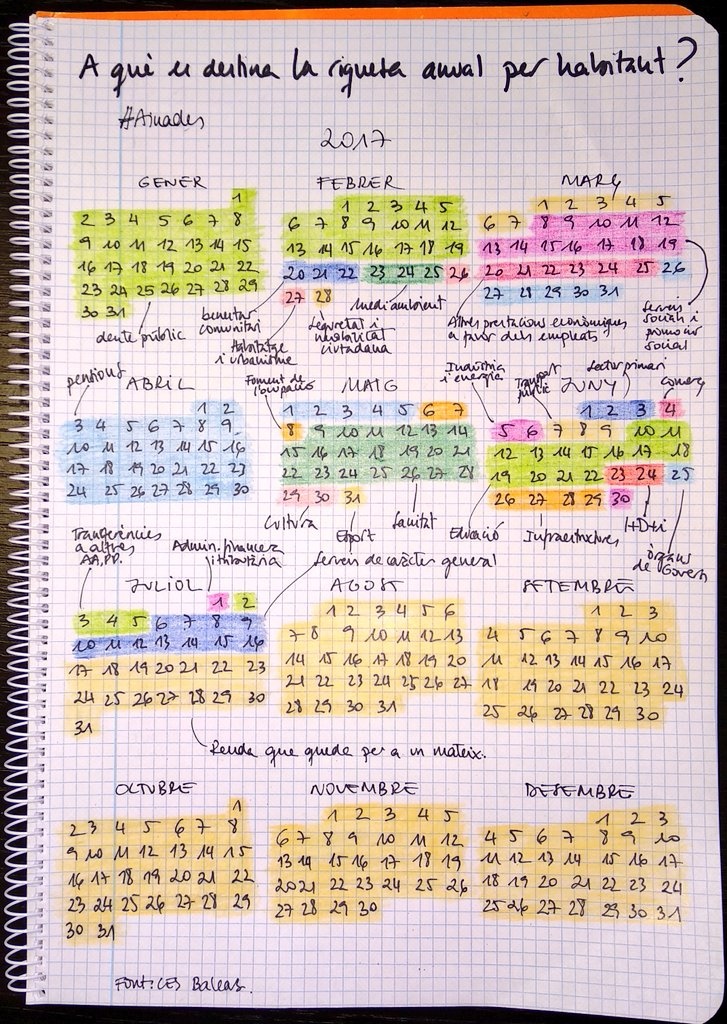 A què es destina la riquesa anual per habitant?
#Ainades
2017
GENER
1
2 3 4 5 6 7 8
9 10 11 12 13 14 15
16 17 18 19 20 21 22
23 24 25 26 27 28 29
30 31
deute públic
FEBRER
1 2 3 4 5
6 7 8 9 10 11 12
13 14 15 16 17 18 19
20 21 22 23 24 25 26
27 28
benestar comunitari
Habitatge i urbanisme
Seguretat i mobilitat ciutadana
medi ambient
MARÇ
1 2 3 4 5
6 7 8 9 10 11 12
13 14 15 16 17 18 19
20 21 22 23 24 25 26
27 28 29 30 31
Altres prestacions econòmiques
a favor dels empleats
Serveis
socials i
promoció
social
pensions
ABRIL
1 2
3 4 5 6 7 8 9
10 11 12 13 14 15 16
17 18 19 20 21 22 23
24 25 26 27 28 29 30
Foment de
l'ocupació
MAIG
1 2 3 4 5 6 7
8 9 10 11 12 13 14
15 16 17 18 19 20 21
22 23 24 25 26 27 28
29 30 31
Cultura
Esport
Sanitat
Indústria
i energia
Transport
públic
Sector primari
JUNY
comerç
1 2 3 4
5 6 7 8 9 10 11
12 13 14 15 16 17 18
19 20 21 22 23 24 25
26 27 28 29 30
Educació
Infraestructures
I+D+i
òrgans
de Govern
Transferències
a altres
AA.PP.
Admin. financera
i tributària
Serveis de caràcter general
JULIOL
1 2
3 4 5 6 7 8 9
10 11 12 13 14 15 16
17 18 19 20 21 22 23
24 25 26 27 28 29 30
31
Renda que queda per a un mateix.
AGOST
1 2 3 4 5 6
7 8 9 10 11 12 13
14 15 16 17 18 19 20
21 22 23 24 25 26 27
28 29 30 31
SETEMBRE
1 2 3
4 5 6 7 8 9 10
11 12 13 14 15 16 17
18 19 20 21 22 23 24
25 26 27 28 29 30
OCTUBRE
1
2 3 4 5 6 7 8
9 10 11 12 13 14 15
16 17 18 19 20 21 22
23 24 25 26 27 28 29
30 31
NOVEMBRE
1 2 3 4 5
6 7 8 9 10 11 12
13 14 15 16 17 18 19
20 21 22 23 24 25 26
27 28 29 30
DESEMBRE
1 2 3
4 5 6 7 8 9 10
11 12 13 14 15 16 17
18 19 20 21 22 23 24
25 26 27 28 29 30 31
Font: CES Balears.